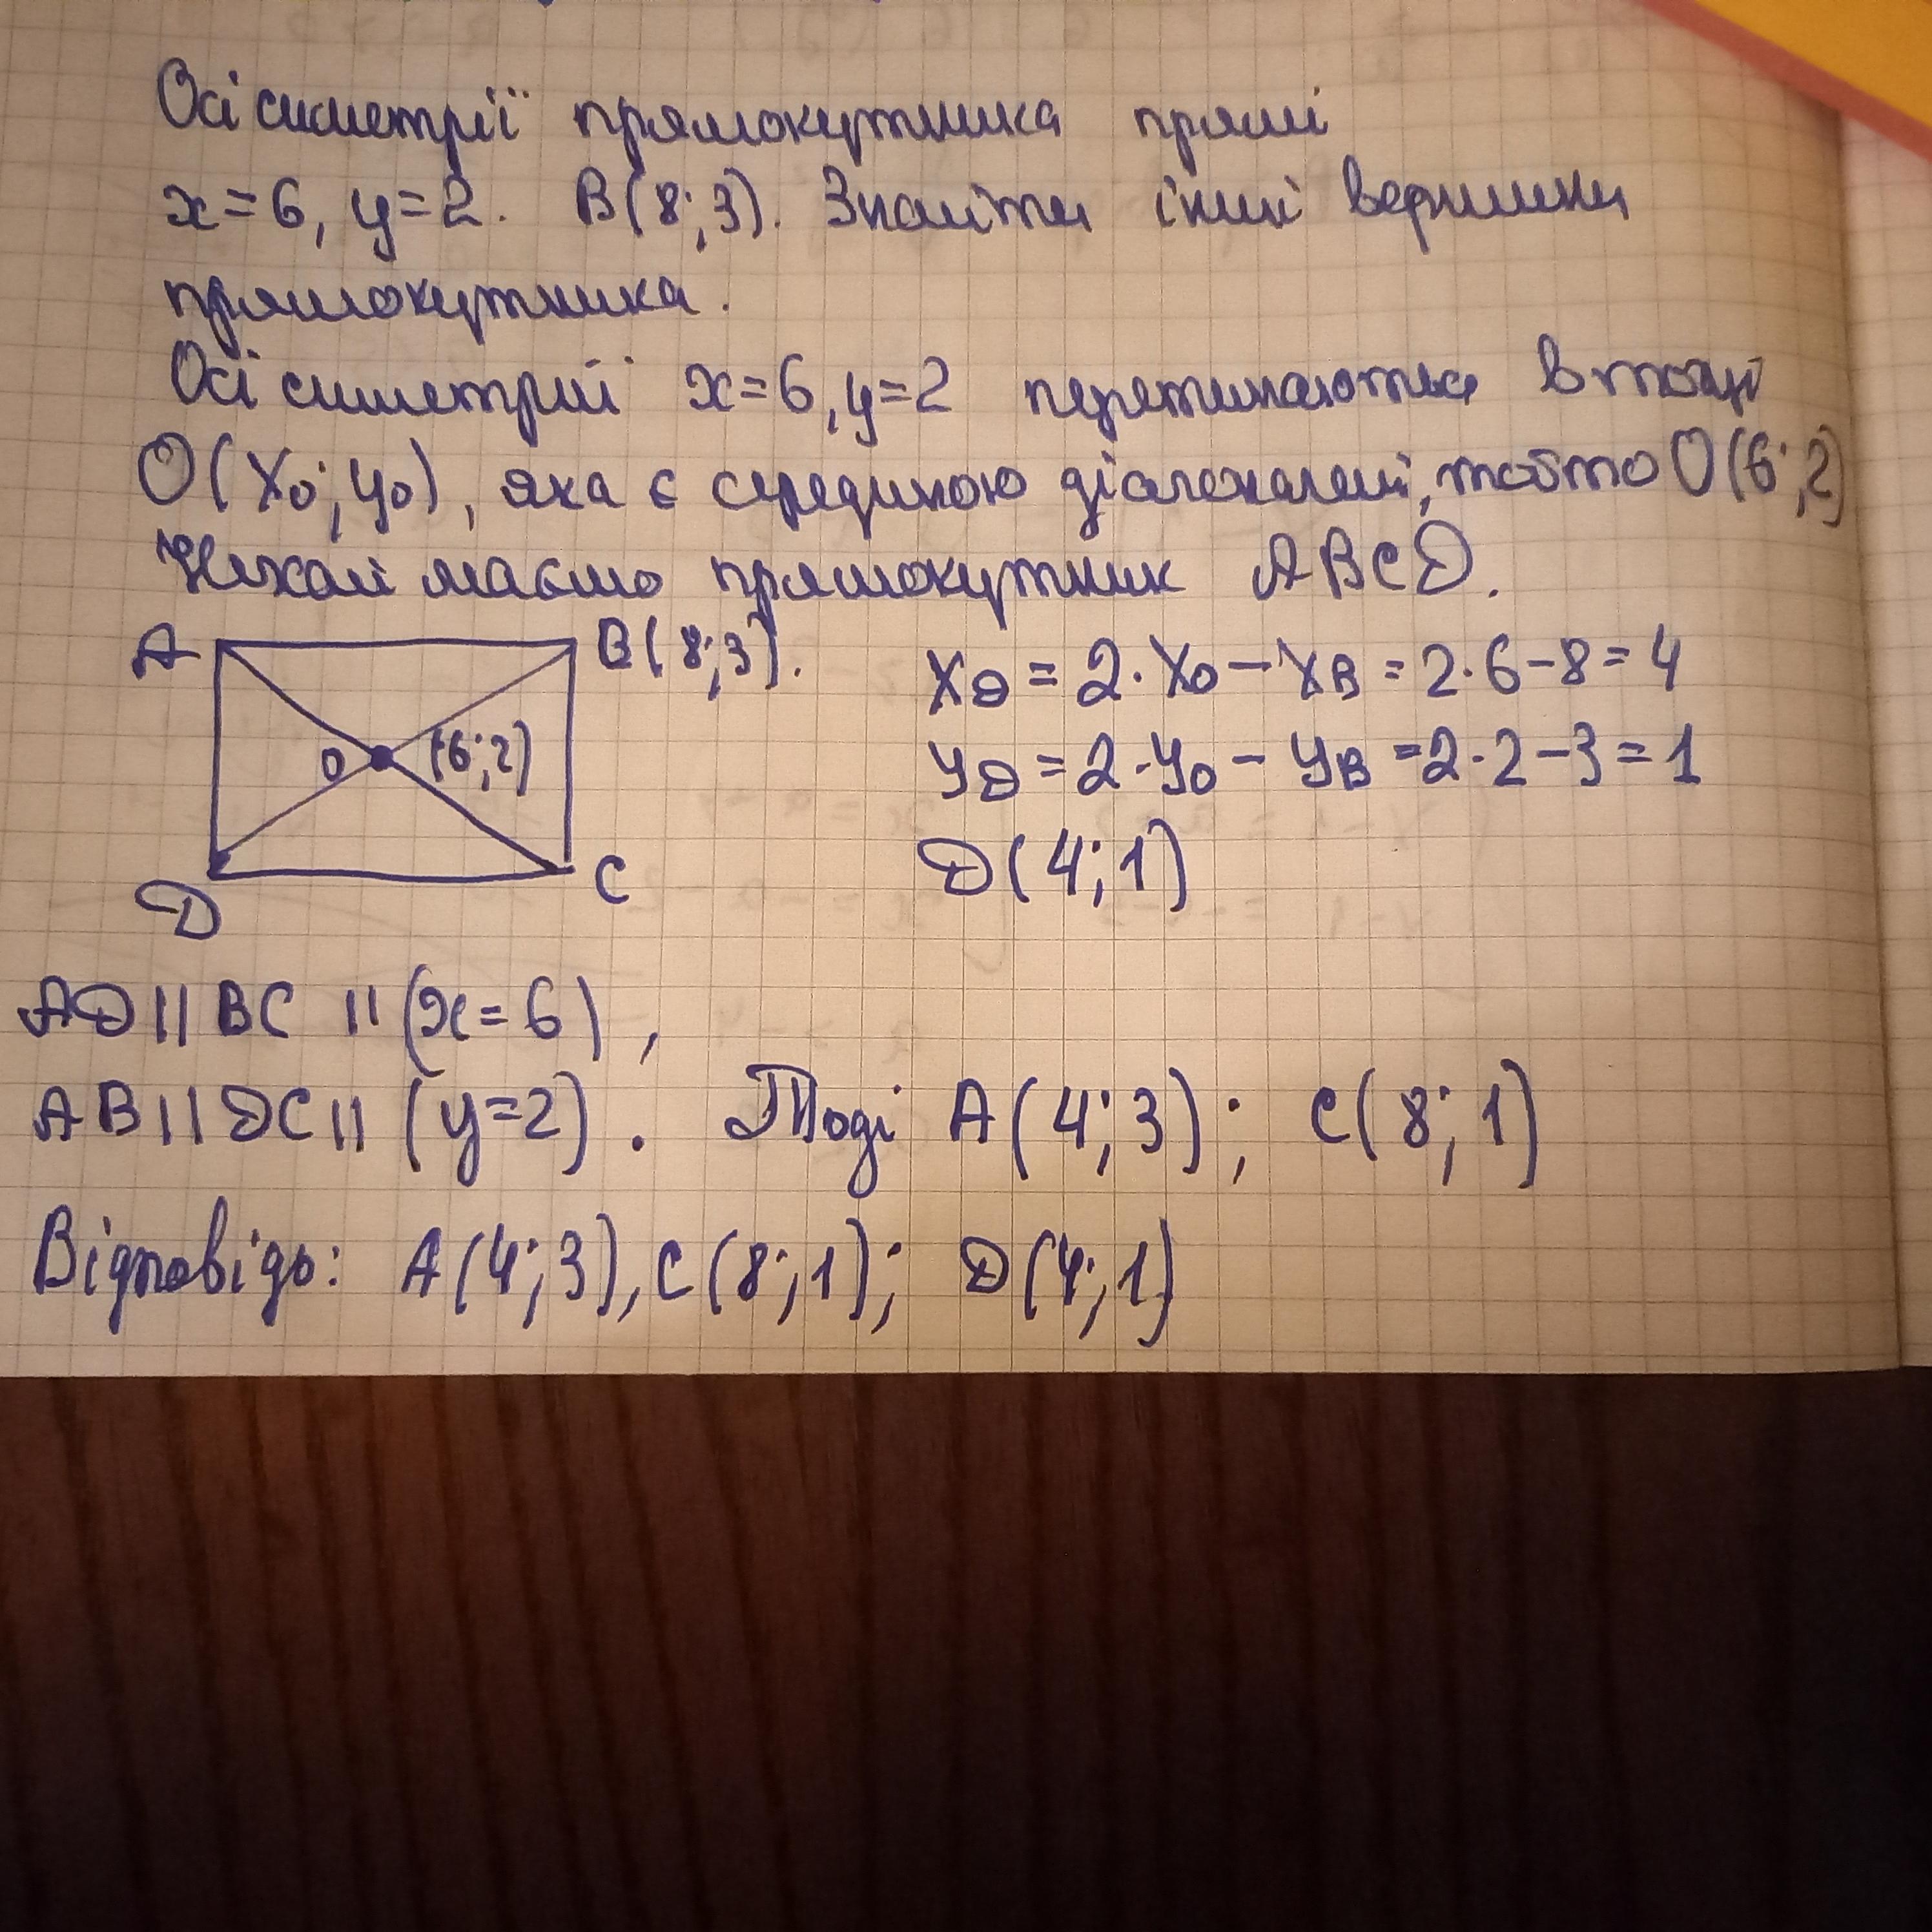 Осі симетрії прямокутника прямі
x=6, y=2. B(8;3). Знайти інші вершини
прямокутника.
Осі симетрії x=6, y=2 перетинаються в точці
O(x₀; y₀), яка є серединою діагоналей, тобто O(6;2)
Нехай маємо прямокутник ABCD.
A B(8;3).
O (6;2)
D C
x_D = 2·x₀ − x_B = 2·6−8=4
y_D = 2·y₀ − y_B = 2·2−3=1
D(4;1)
AD || BC || (x=6),
AB || DC || (y=2). Тоді A(4;3); C(8;1)
Відповідь: A(4;3), C(8;1); D(4;1)